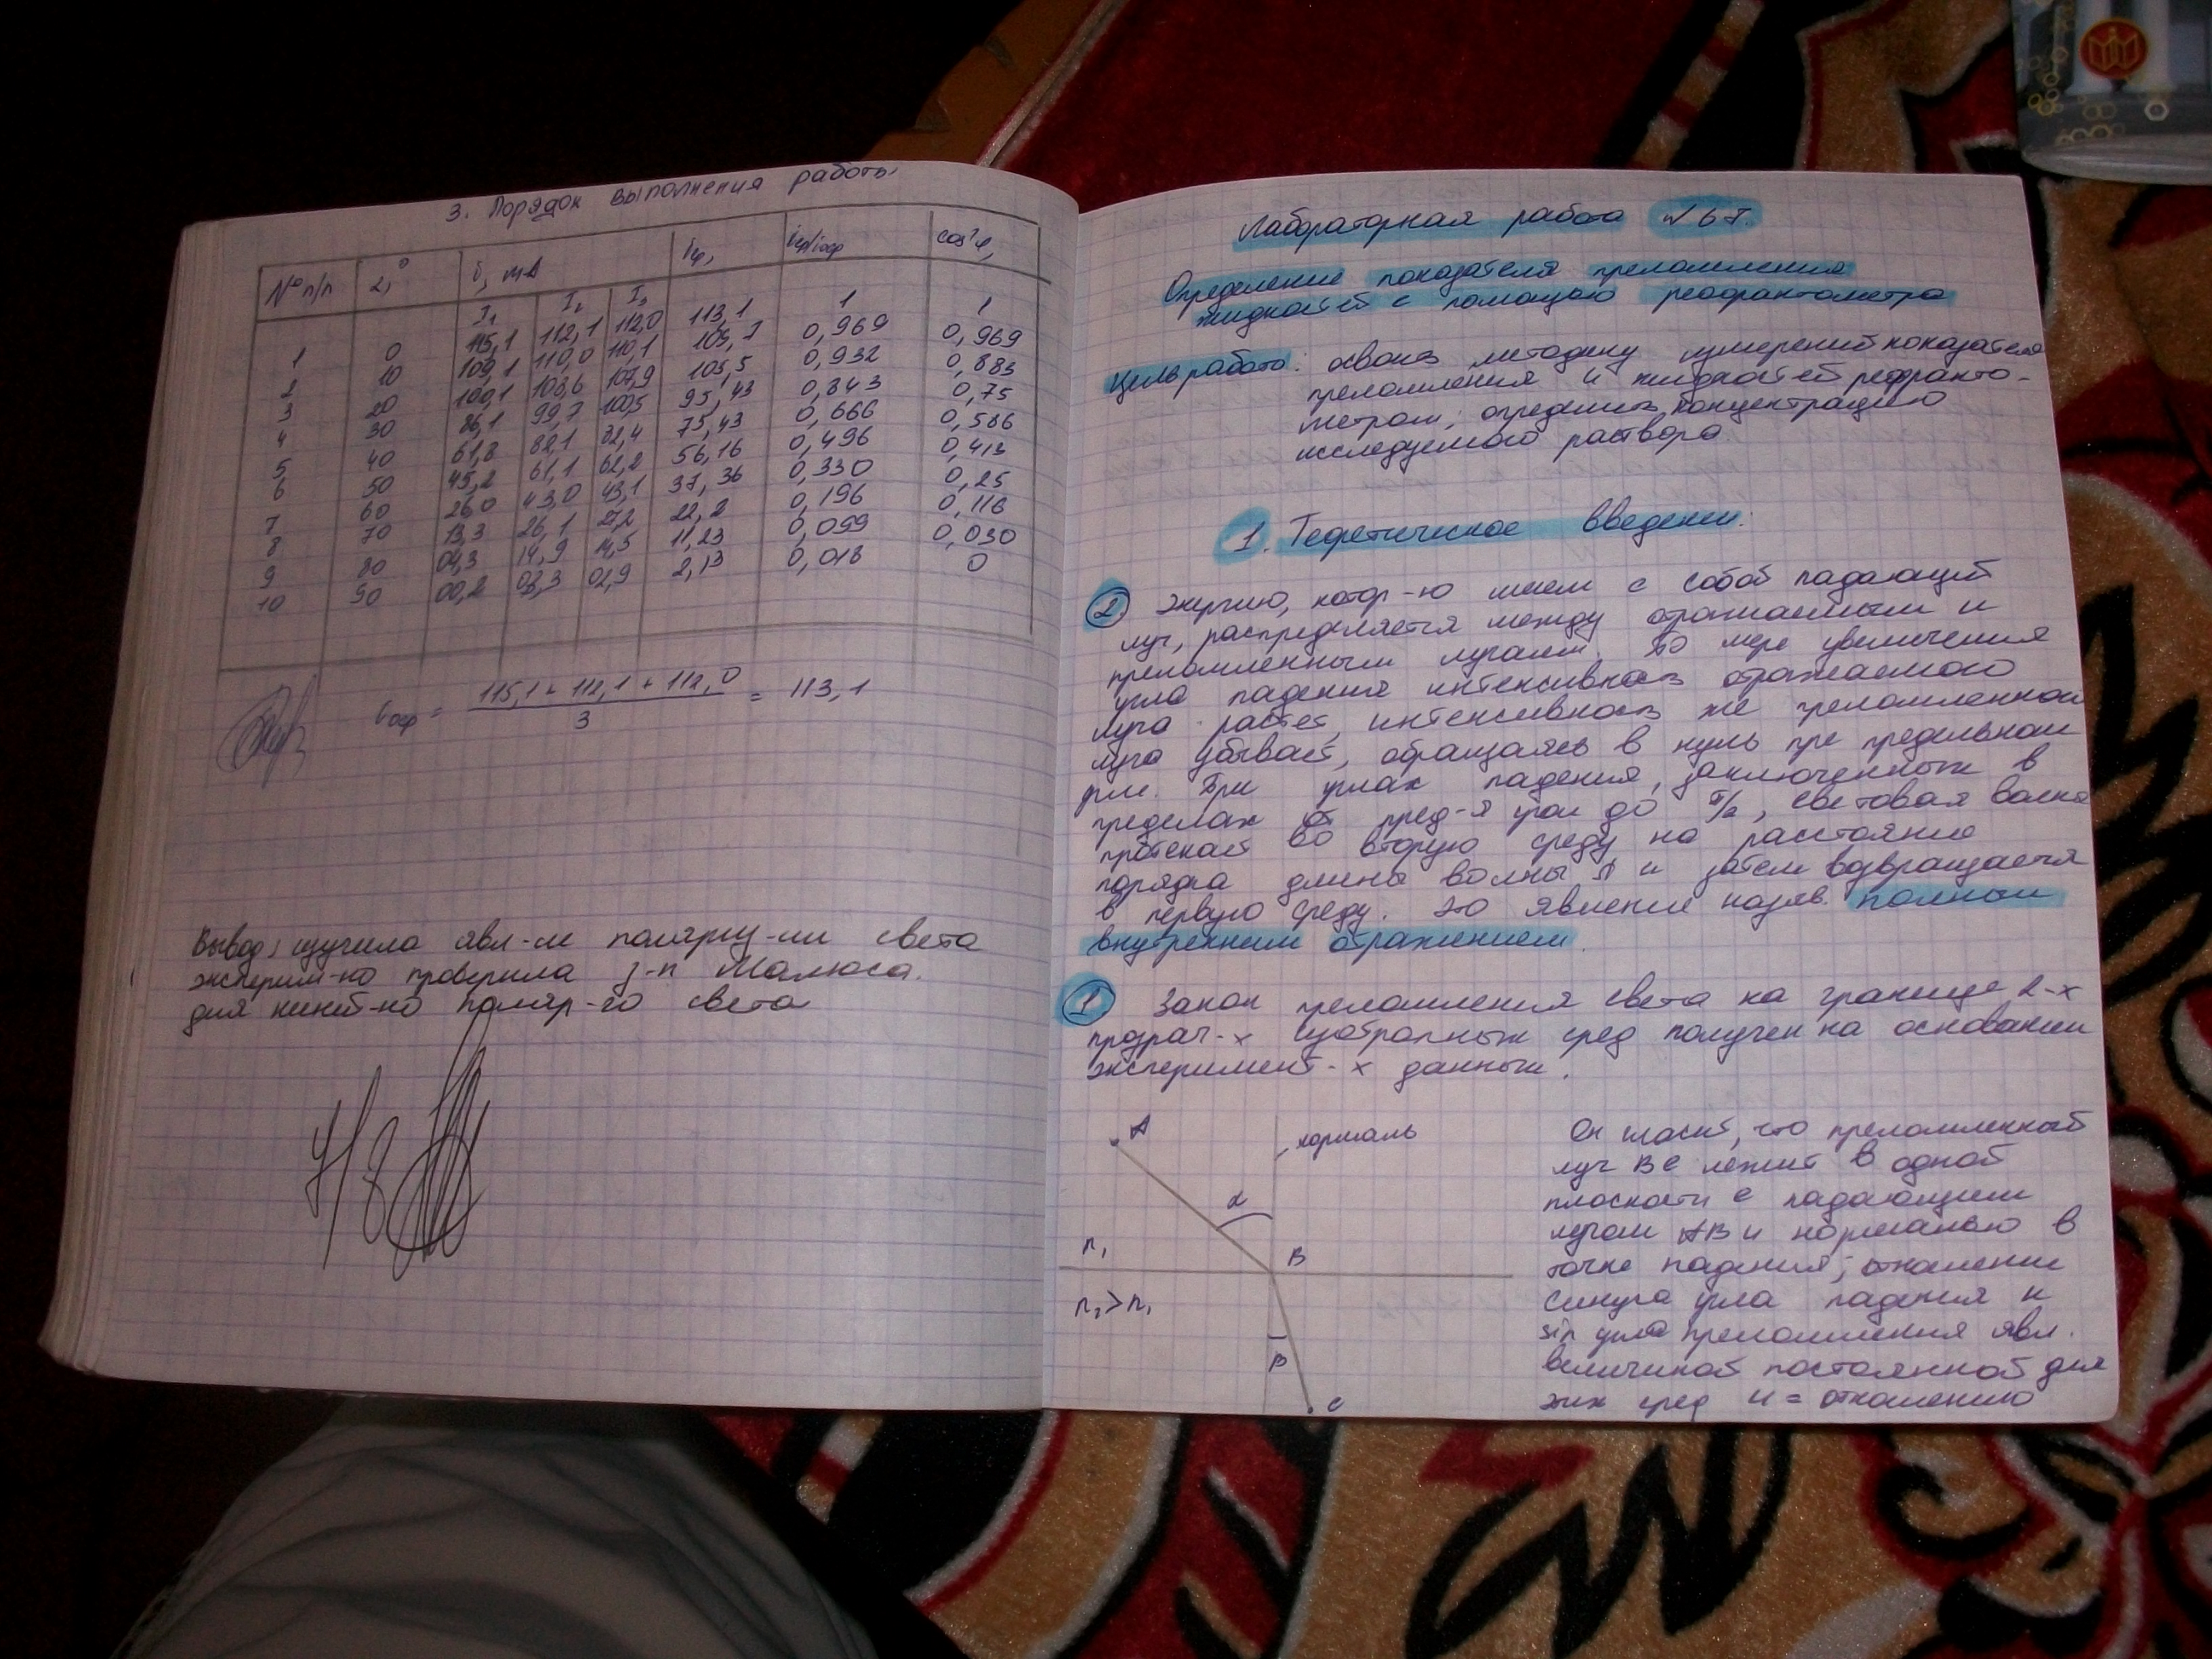 3. Порядок выполнения работы
№ п/п α,° i, mA iφ, iφ/i0ср cos²φ,
I₁ I₂ I₃
1 0 115,1 112,1 112,0 113,1 1 1
2 10 109,1 110,0 110,1 109,7 0,969 0,969
3 20 100,1 108,6 107,9 105,5 0,932 0,883
4 30 86,1 99,7 100,5 95,43 0,843 0,75
5 40 61,8 82,1 82,4 75,43 0,666 0,586
6 50 45,2 61,1 62,2 56,16 0,496 0,413
7 60 26,0 43,0 43,1 37,36 0,330 0,25
8 70 13,3 26,1 27,2 22,2 0,196 0,116
9 80 04,3 14,9 14,5 11,23 0,099 0,030
10 90 00,2 03,3 02,9 2,13 0,018 0
i0ср = 115,1 + 112,1 + 112,0 / 3 = 113,1
Вывод: изучила явл-ие поляриз-ии света
эксперим-но проверила з-н Малюса.
для линей-но поляр-го света
Лабораторная работа №67.
Определение показателя преломления
жидкостей с помощью рефрактометра
Цель работы: освоить методику измерений показателя
преломления и жидкостей рефракто-
метром; определить концентрацию
исследуемого раствора
1. Теоретическое введение:
2. Энергию, котор-ю несет с собой падающий
луч, распределяется между отражаемым и
преломленным лучами. По мере увеличения
угла падения интенсивность отражаемого
луча растет, интенсивность же преломленного
луча убывает, обращаясь в нуль при предельном
угле. При углах падения, заключенных в
пределах от пред-я угла до π/2, световая волна
протекает во вторую среду на расстояние
порядка длины волны λ и затем возвращается
в первую среду. Это явление назыв. полным
внутренним отражением.
1 Закон преломления света на границе 2-х
прозрач-х изотропных сред получен на основании
эксперимент-х данных.
A
нормаль
α
n₁
B
n₂>n₁
β
C
Он гласит, что преломленный
луч BC лежит в одной
плоскости с падающим
лучом AB и нормалью в
точке падения; отношение
синуса угла падения к
sin угла преломления явл.
величиной постоянной для
этих сред и = отношению